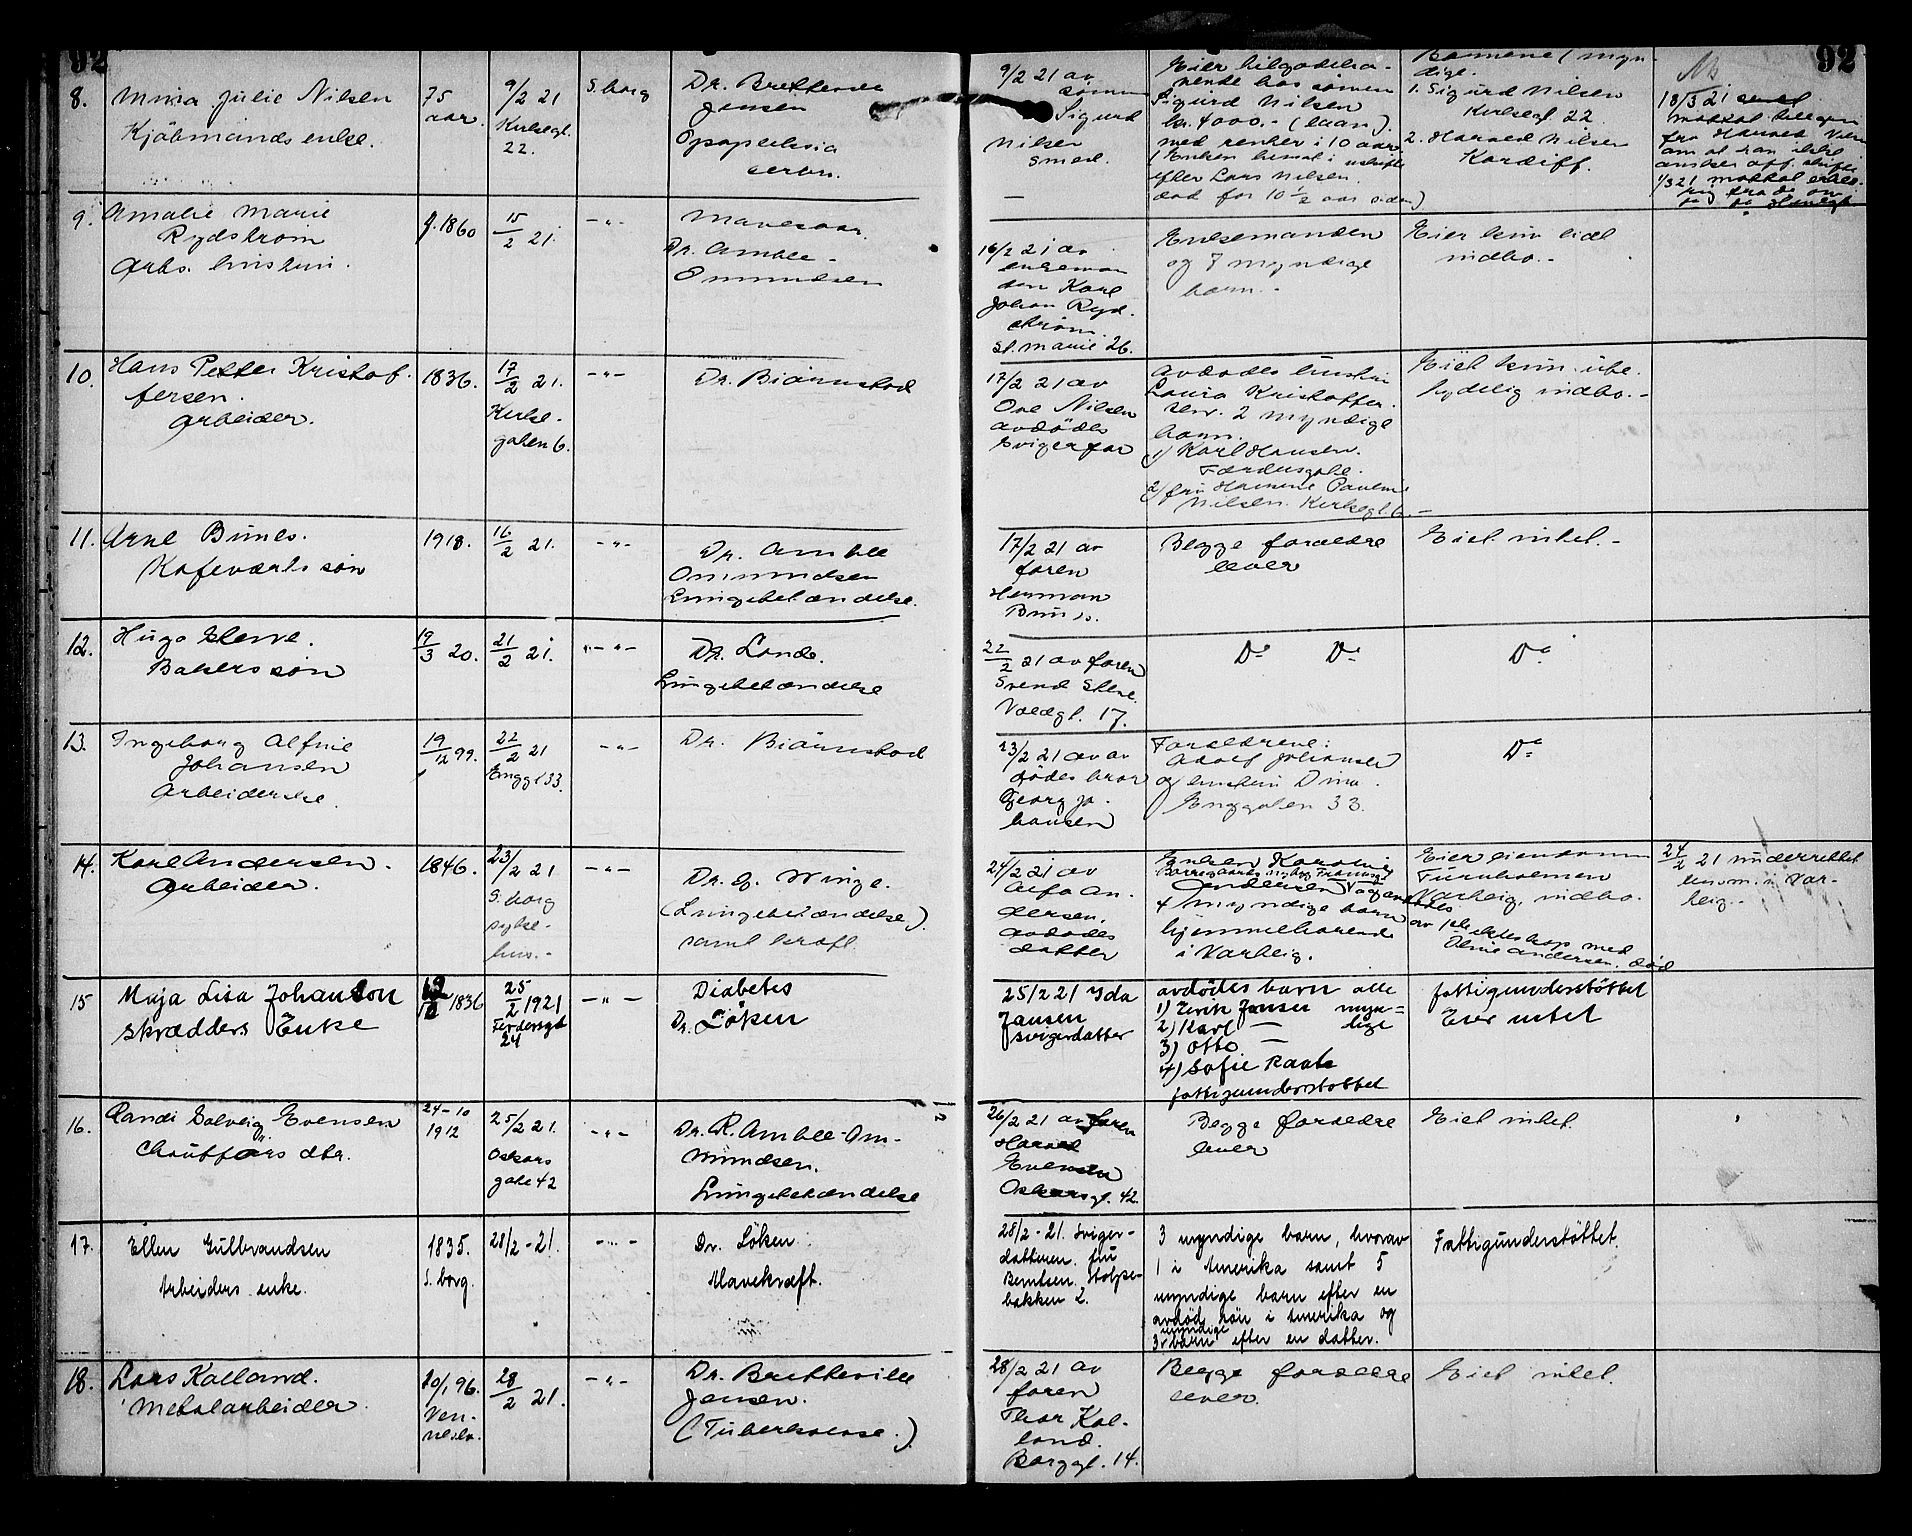 92
92
8.
Minna Julie Nilsen
Kjöbmands enke.
75
aar.
9/2 21
Kirkegt.
22.
S.borg
Dr. Bretteville
Jensen
serbri.
9/2 21 av
sönnen
Sigurd
Nilsen
smed.
Eier tilgodeha-
vende hos sönnen
Sigurd Nilsen
kr. 4000.- (laan).
med renter i 10 aar.
(Enken hensat i uskifte
efter Lars Nilsen.
död for 10 1/2 aar siden)
Barnene (myn-
dige.
1. Sigurd Nilsen
Kirkegt. 22.
2. Harald Nilsen
Kardiff.
18/3 21
mottat telegram
fra Harald Nilsen
om at han ikke
9.
Amalie Marie
Rydström
Arbs. hustru.
f. 1860
15/2 21.
-"-
Mavesaar.
Dr. Amble-
Ommundsen
16/2 21 av
enkeman
den Karl
Johan Ryd-
ström.
St. Marie 26.
Enkemanden
og 7 myndige
barn.-
Eier kun litet
indbo.-
10.
Hans Petter Kristof-
fersen.
Arbeider.
1836.
17/2 21.
Kirke-
gaten 6.
-"-
Dr. Biörnstad
17/2 21 av
Ove Nilsen
avdödes
svigerfar
Avdödes hustru
Laura Kristoffer-
sen. 2 myndige
barn.
1) Karl Hansen.
Færdersgate.
2) fru Hanine Pauline
Nilsen. Kirkegt. 6.-
Eiet kun ube-
tydelig indbo.-
11.
Arne Bunes.
Kafeværts sön
1918.
16/2 21.
-"-
Dr. Amble
Ommundsen
Lungebetændelse.
17/2 21 av
faren
Herman
Bunes.
Begge forældre
lever
Eiet intet.-
12.
Hugo Stene.
Bakers sön
19/3 20.
21/2 21.
-"-
Dr. Lande.
Lungebetændelse
22/2 21 av faren
Svend Stene.
Voldgt. 17.
Do Do
Do
13.
Ingeborg Alfine
Johansen
Arbeiderske.
19/12 99.
22/2 21
Enggt 33.
-"-
Dr. Biörnstad
23/2 21 av av
dödes bror
Georg Jo-
hansen
Forældrene:
Adolf Johansen
og hustru Dina.
Enggaten 33.
Do
14.
Karl Andersen.
Arbeider.
1846.
23/2 21
S.borg
syke-
hus.-
-"-
Dr. G. Winge.
(Lungebetændelse).
samt kræft.
24/2 21 av
Alfa An-
dersen.
avdödes
datter
Enken Karoline
Andersen
4 myndige barn
hjemmehörende
i Varteig.
av 1ste ekteskap med
Oline Andersen. död
Eier eiendommen
Furuholmen
Varteig, indbo.
24/2 21 underrettet
lensm. i Var-
teig.-
15
Maja Lisa Johanson
skrædders Enke
1836
25/2 1921
Ferdersgt
24
-"-
Diabetes
Dr. Löken
25/2 21 Ida
Jansen
svigerdatter
avdödes barn alle
1) Erik Jansen myn-
2) Karl — dige
3) Otto —
4) Sofie Raate
fattigunderstöttet
fattigunderstöttet
Eier intet
16.
Randi Solveig Evensen
Chaufförs dtr.
24-10
1912
25/2 21.
Oskars
gate 42
-"-
Dr. R. Amble-Om-
mundsen.
Lungebetændelse
26/2 21 av faren
Harald
Evensen
Oskarsgt. 42.
Begge forældre
lever
Eiet intet.
17.
Ellen Gulbrandsen
Arbeiders enke.
1835.
S.borg.
28/2-21.
-"-
Dr. Löken
Mavekræft.
28/2-21. Sviger-
datteren. fru
Berntsen. Stolpe-
bakken 2.
3 myndige barn, hvorav
1 i Amerika samt 5
myndige barn efter en
avdöd sön i Amerika og
myndige
3 barn efter en datter.
Fattigunderstöttet.
18.
Lars Kalland.
Metalarbeider.
20/1 96.
Ven-
nesla.
28/2 21.
-"-
Dr. Bretteville
Jensen.
(Tuberkulose.)
28/2 21 av
faren
Thor Kal-
land.
Borggt. 14.
Begge forældre
lever.
Eiet intet.